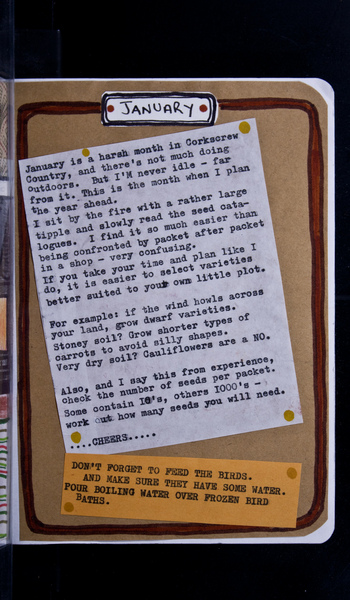 JANUARY
January is a harsh month in Corkscrew
Country, and there's not much doing
outdoors. But I'M never idle - far
from it. This is the month when I plan
the year ahead.
I sit by the fire with a rather large
tipple and slowly read the seed cata-
logues. I find it so much easier than
being confronted by packet after packet
in a shop - very confusing.
If you take your time and plan like I
do, it is easier to select varieties
better suited to your own little plot.
For example: if the wind howls across
your land, grow dwarf varieties.
Stoney soil? Grow shorter types of
carrots to avoid silly shapes.
Very dry soil? Cauliflowers are a NO.
Also, and I say this from experience,
check the number of seeds per packet.
Some contain 10's, others 1000's -
work out how many seeds you will need.
....CHEERS.....
DON'T FORGET TO FEED THE BIRDS.
AND MAKE SURE THEY HAVE SOME WATER.
POUR BOILING WATER OVER FROZEN BIRD
BATHS.